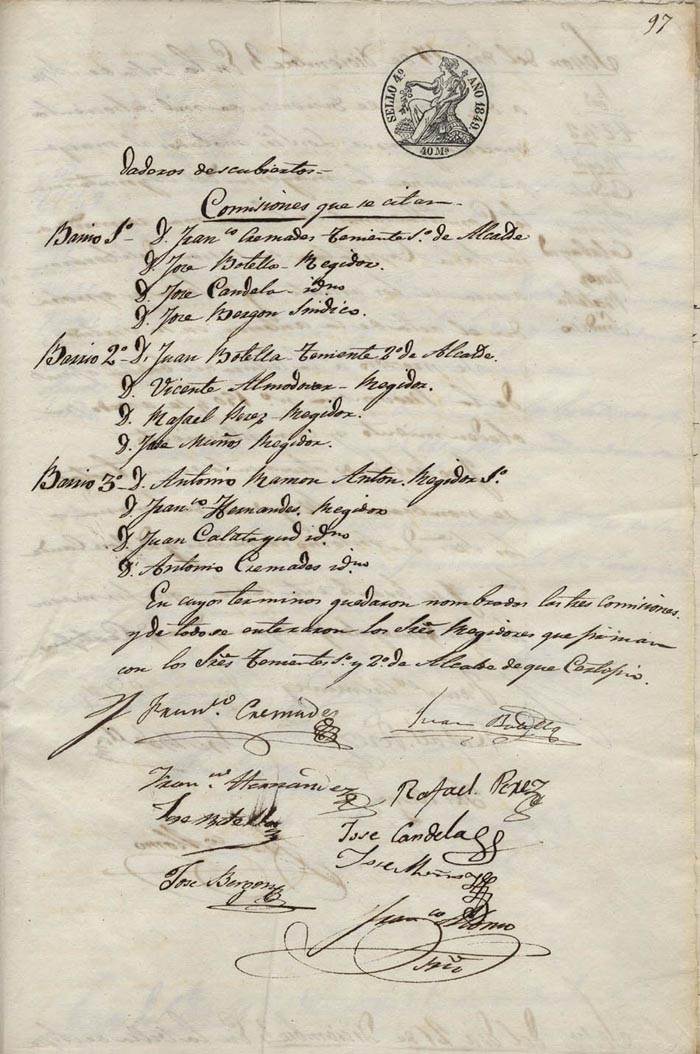 97
SELLO 4º AÑO 1849
40 Ms
daderos descubiertos=
Comisiones que se citan
Barrio 1º D. Franco Cremades Teniente 1º de Alcalde
D. Jose Botella Regidor.
D. Jose Candela idno
D. Jose Bergon Sindico.
Barrio 2º D. Juan Botella Teniente 2º de Alcalde.
D. Vicente Almodovar Regidor.
D. Rafael Perez Regidor.
D. Jose Muños Regidor.
Barrio 3º D. Antonio Ramon Anton. Regidor 1º
D. Franco Hernandes. Regidor
D. Juan Calatayud idno
D. Antonio Cremades idno
En cuyos terminos quedaron nombrados las tres Comisiones.
y de todo se enteraron los Sres Regidores que firman
con los Sres Tenientes 1º y 2º de Alcalde de que Certifico.
Franco Cremades
Juan Botella
Franco Hernández
Rafael Perez
Jose Botella
Jose Candela
Jose Muños
Jose Bergon
Franco
Srio